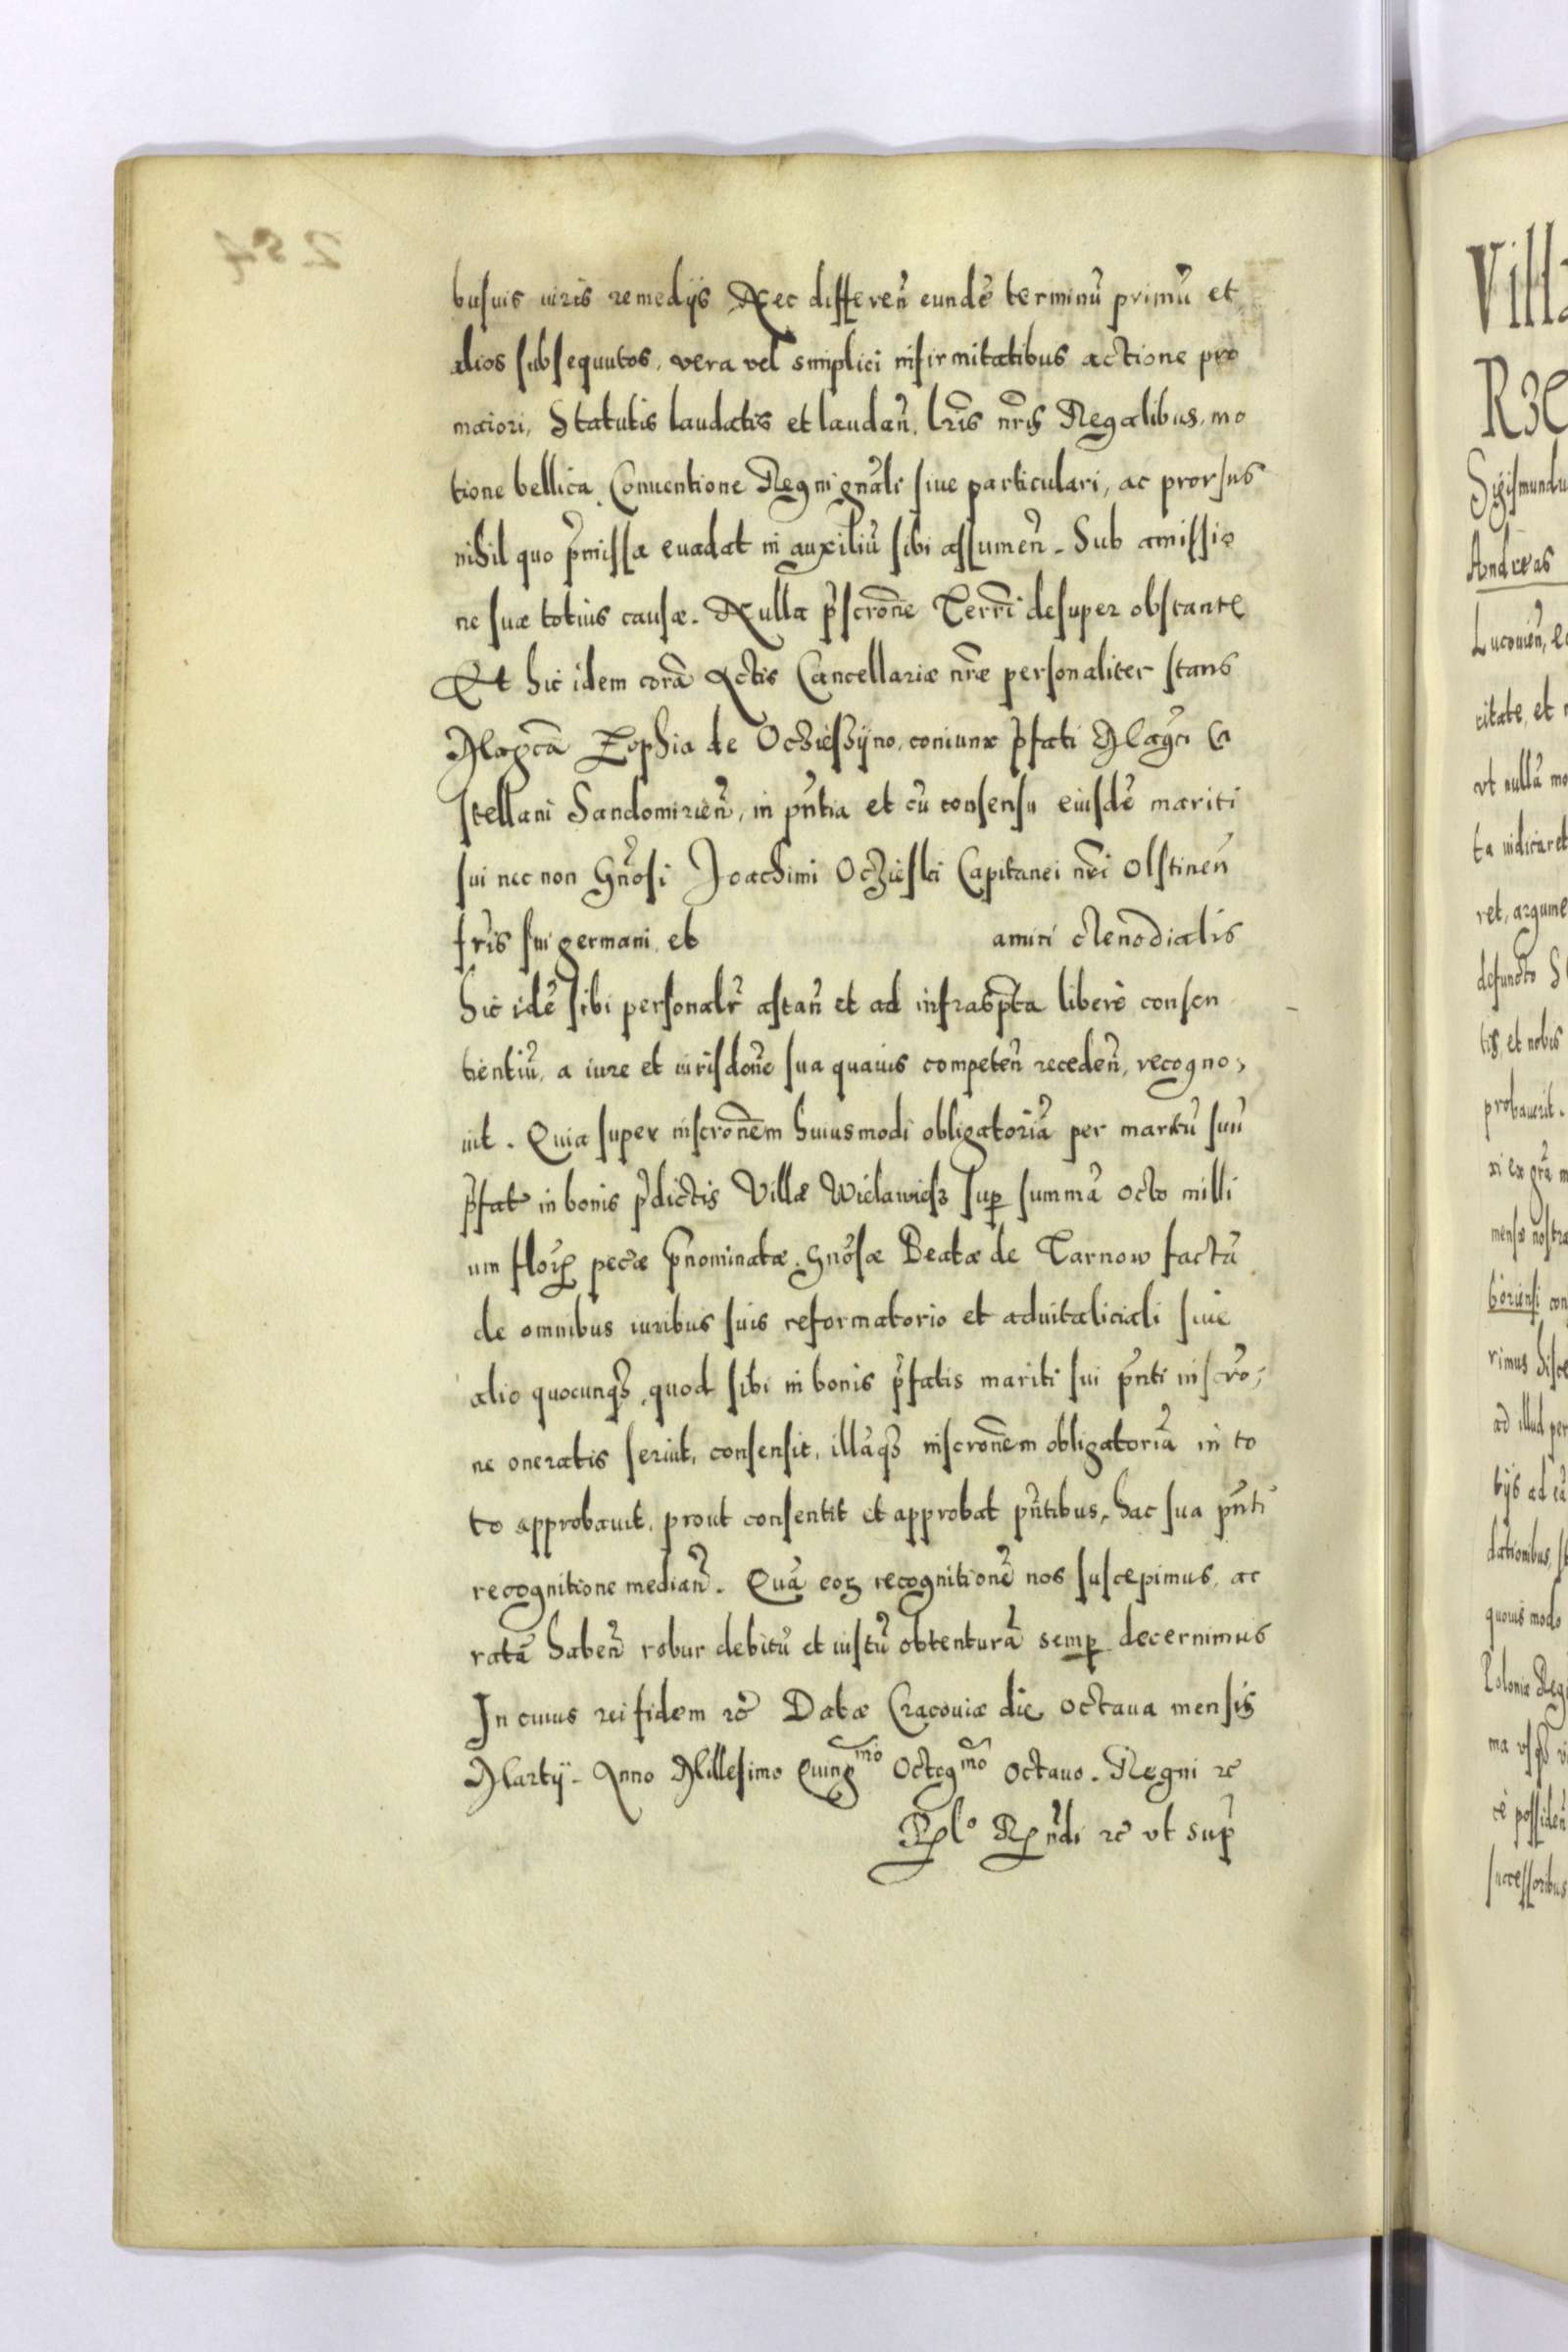 busuis iuris remedijs Nec differen̄ eundē terminū primū et
alios subsequutos, vera vel simplici infirmitatibus actione pro
maiori, Statutis laudatis et laudan̄. lr̄is nr̄is Regalibus, mo
tione bellica Conuentione Regni gn̄ali siue particulari, ac prorsus
nihil quo p̄missa euadat in auxiliū sibi assumen̄. Sub amissio
ne suæ totius causæ. Nulla p̄scrōne Terrī desuper obstante
Et hic idem corā Actis Cancellariæ nr̄æ personaliter stans
Magcā Zophia de Oczieshijno, coniunx p̄fati Magci Ca
stellani Sandomirien̄, in pn̄tia et cū consensu eiusdē mariti
sui nec non Gn̄osi Joachimi Oczieski Capitanei nr̄i Olstinen̄
fr̄is sui germani et amici clenodialis
hic idē sibi personalr̄ astan̄ et ad infrasp̄ta liberè consen
tientiū, a iure et iurisdōne sua quauis competen̄ receden̄, recogno,
uit. Quia super inscrōnem huiusmodi obligatoriā per maritū suū
p̄fatū in bonis p̄dictis Villæ Wielawiesz sup summā octo milli
um flor pecæ p̄nominatæ Gn̄osæ Beatæ de Tarnow factā
de omnibus iuribus suis reformatorio et aduitaliciali siue
alio quocunqȝ, quod sibi in bonis p̄fatis mariti sui pn̄ti inscrō,
ne oneratis seruit, consensit, illāqȝ inscrōnem obligatoriā in to
to approbauit, prout consentit et approbat pn̄tibus, hac sua pn̄ti
recognitione median̄. Quā eoꝝ recognitionē nos suscepimus, ac
ratā haben̄ robur debitū et iustū obtenturā semp decernimus
In cuius rei fidem rc̄ Datæ Cracouiæ die octaua mensis
Martij. Anno Millesimo Quingmo Octogmo octauo. Regni rc̄
Rlo Rndi rc̄ vt sup̄
Villa
Rze
Sigismundu
Andreas
Lucouien̄, e
citate, et
vt nullā mo
ta iudicaret
ret, argume
defuncto S
tis, et nobis
probauerit.
xi ex gr̄a m
mensæ nostræ
boriensi con
rimus disce
ad illud per
tijs ad eā
dationibus, s
quouis modo
Poloniæ Reg
ma vsqȝ vi
cè possiden̄
successoribus